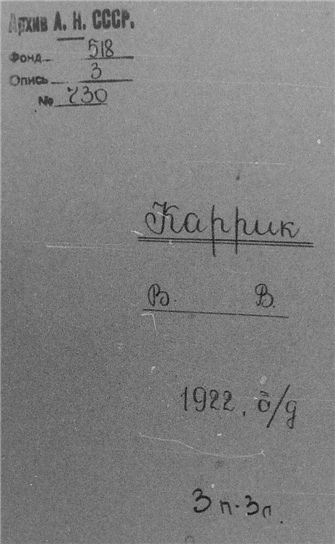 Архив А. Н. СССР.
Фонд 518
Опись 3
№ 730
Каррик
В. В.
1922, б/д
3 п. 3 л.